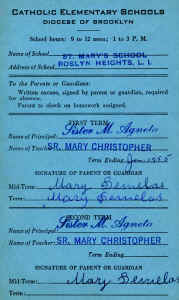 CATHOLIC ELEMENTARY SCHOOLS
DIOCESE OF BROOKLYN
School hours: 9 to 12 noon; 1 to 3 P. M.
Name of School ST. MARY'S SCHOOL
Address of School ROSLYN HEIGHTS, L. I.
To the Parents or Guardians:
Written excuse, signed by parent or guardian, required
for absence.
Parent to check on homework assigned.
FIRST TERM
Name of Principal Sister M. Agneta
Name of Teacher SR. MARY CHRISTOPHER
Term Ending
SIGNATURE OF PARENT OR GUARDIAN
Mid-Term: Mary
End-Term: Mary
SECOND TERM
Name of Principal: Sister M. Agneta
Name of Teacher: SR. MARY CHRISTOPHER
Term Ending
SIGNATURE OF PARENT OR GUARDIAN
Mid-Term: Mary